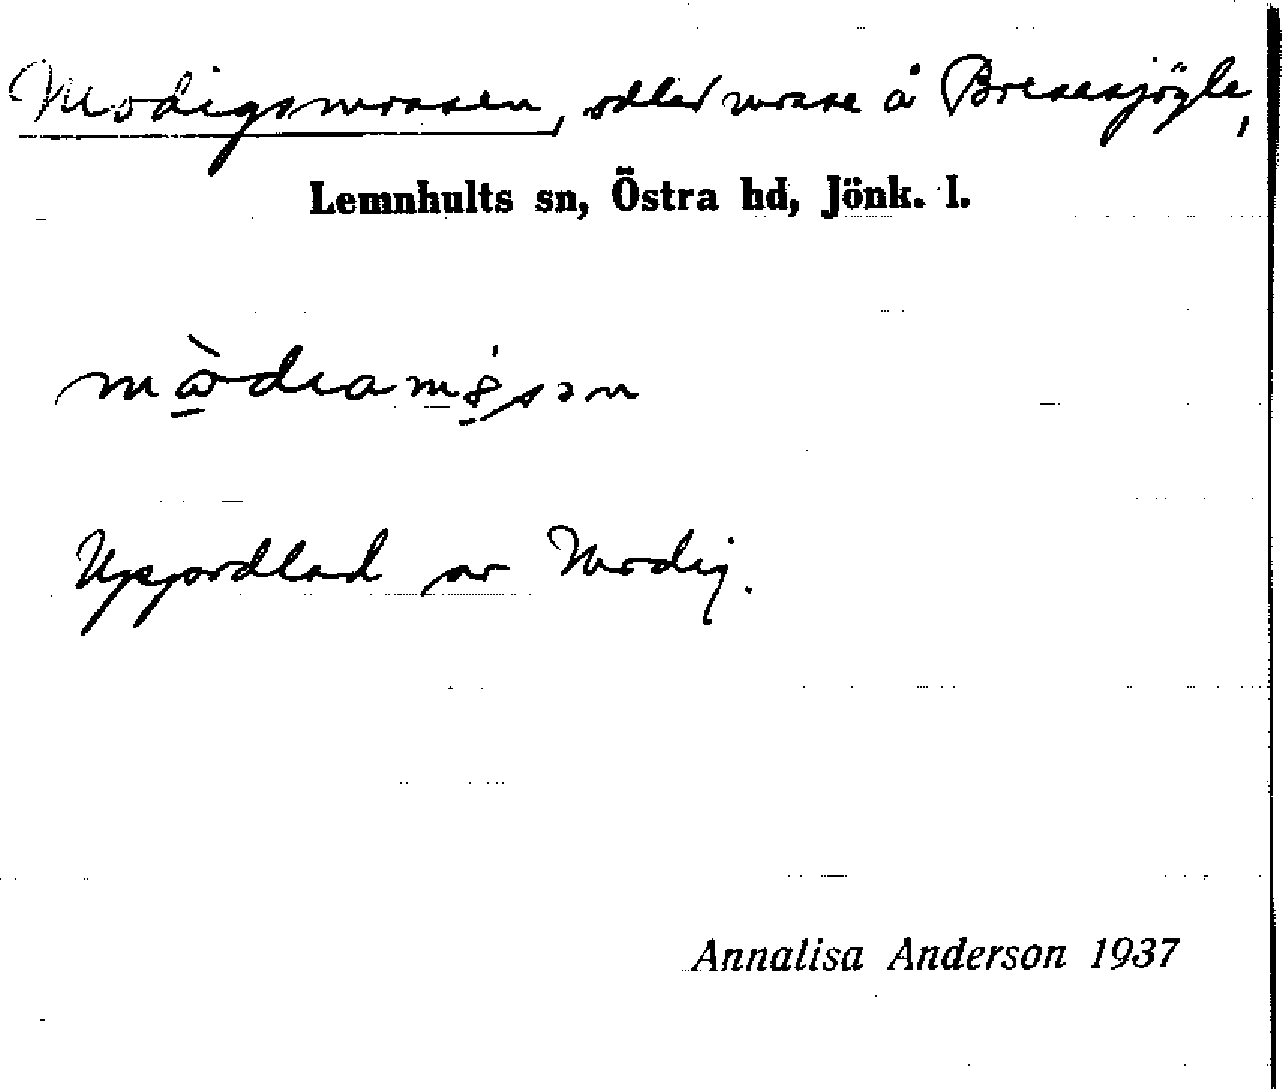 Modigsmossen, odlad mosse å Bresasjögle,
Lemnhults sn, Östra hd, Jönk. l.
Uppodlad av Modig.
Annalisa Anderson 1937